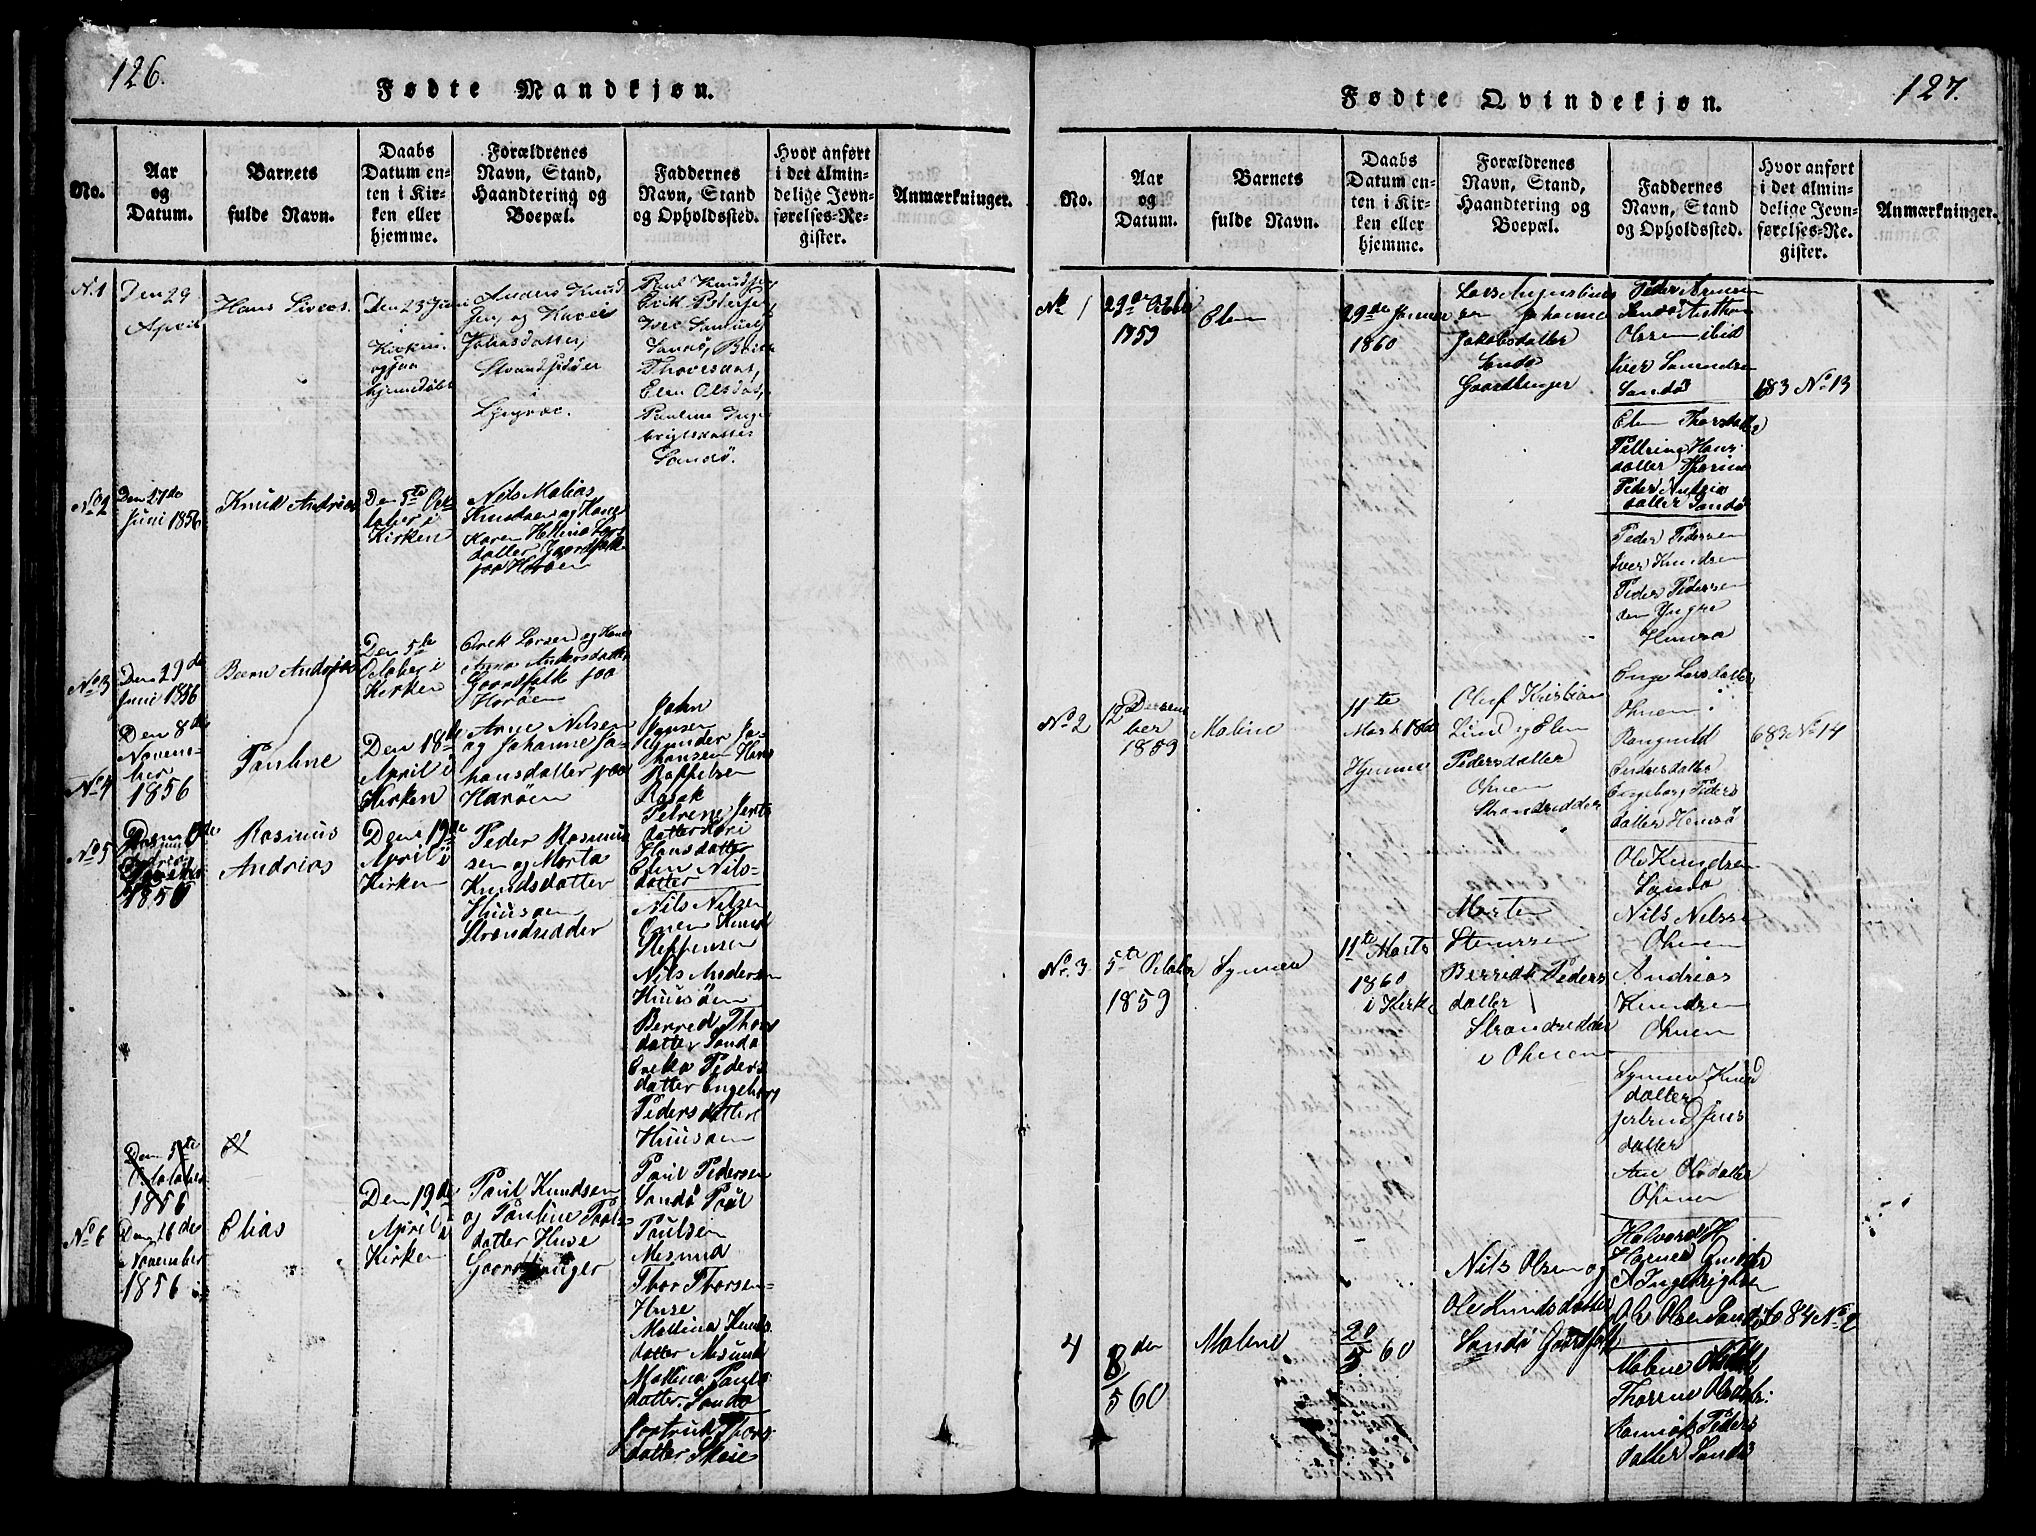 126.
Fødte Mandkjøn.
No.
Aar
og
Datum.
Barnets
fulde Navn.
Daabs
Datum en-
ten i Kir-
ken eller
hjemme.
Forældrenes
Navn, Stand,
Haandtering og
Boepæl.
Faddernes
Navn, Stand
og Opholdssted.
Hvor anført
i det almin-
delige Jevn-
førelses-Re-
gister.
Anmærkninger.
N.1
Den 29
April
Hans Siver
Den 23 Juni
i
Kirken
og paa
hjemmedøbt
Anders Knud
sen og Karen
Johansdatter,
Strandsidder
i
Paul Knudsen
Erik Petersen
Iver Samuels
Sandø, Brith
Elen Olsdat,
Pauline Inge
brigtsdatter
Sandø.
No 2
Den 27de
Juni 1856
Knud Andreas
Den 5te Oc
tober i
Kirken
Nils Matias
Knudsen og Kone
Karen Hellina Lars
datter Gaardfolk
paa Harøen
No 3
Den 29de
Juni 1856
Bern Andreas
Den 5te
October i
Kirken
Erik Larsen og Kone
Anne Andersdatter
Gaardfolk paa
Harøen
No 4
Den 8de
Novem-
ber
1856
Pauline
Den 18de
April i
Kirken
Arne Nilsen
og Johanne Jo-
hansdatter paa
Harøen
John
Jynsen
Gunder Jo-
hansen Hans
Roppelsen
Rosok
Petrene Jerts
datter Kari
Hansdatter
Elen Nils-
datter
No 5
1856
Rasmus
Andreas
Den 19de
April i
Kirken
Peder Rasmus
sen og Marta
Knudsdatter
Huusøen
Strandsidder
Nils Nilsen
Onen Knud
Steffensen
Nils Andersen
Huusøen
Berred Thors
datter Sandø
Erika Peders
datter Engeborg
Pedersdatter
Huusøen
Den 5te
October
1856
No 6
Den 26de
November
1856
Elias
Den 19de
April i
Kirken
Paul Knudsen
og Pauline Pouls
datter Huse
Gaardbruger
Paul Pedersen
Sandø Paul
Paulsen
Mesund
Thor Thorsen
Huse
Mallina Knuds
datter Mesund
Mallina Pauls
datter Sandø
Jortruk Thors
datter Skeie
127.
Fødte Qvindekjøn.
No.
Aar
og
Datum.
Barnets
fulde Navn.
Daabs
Datum en-
ten i Kir-
ken eller
hjemme.
Forældrenes
Navn, Stand,
Haandtering og
Boepæl.
Faddernes
Navn, Stand
og Opholdssted.
Hvor anført
i det almin-
delige Jevn-
førelses-Re-
gister.
Anmærkninger.
No 1
29de Octbr
1859
Elen
29de Januar
1860
Lars Augustinus
sen Johanne
Jakobsdatter
Sandø
Gaardbruger
Peder Arnesen
Sandø
Olsen ibid
Iver Samuelsen
Sandø
Elen Thorsdatter
Pettrine Hans
datter
datter Sandø
Peder Pedersen
Iver Knudsen
Peder Pedersen
den Yngre
Huusø
183 No 13
No 2
12 Decem
ber
1859
Maline
11te
Mart 1860
Hjemme
Oluf Kristian
Lind og Elen
Pedersdatter
Ohnen
Strandsidder
Enge Larsdatter
Ohnen
Rangnild
Endresdatter
Engeborg Peders
datter Huusø
683 No 14
No. 3
5te October
1859
Synneve
11te Marts
1860
i Kirke
Morten
Stenersen
Berride Peders
datter
Strandsidder
i Ohnen
Ole Knudsen
Sandø
Nils Nilsse
Ohnen
Andreas
Knudsen
Ohnen
Synnev Knud
datter
Jertrud Jens
datter
Ane Olsdatter
Ohnen
4
8 den
5 60
Malene
20
5 60
Nils Olsen og
Ole Knudsdatter
Sandø Gaardfolk
A Ingebrigtsen
Ole Olsen Sandø
Malene Olsdat
Thorene Olsdat
Peders
datter Sandø
684 No 2